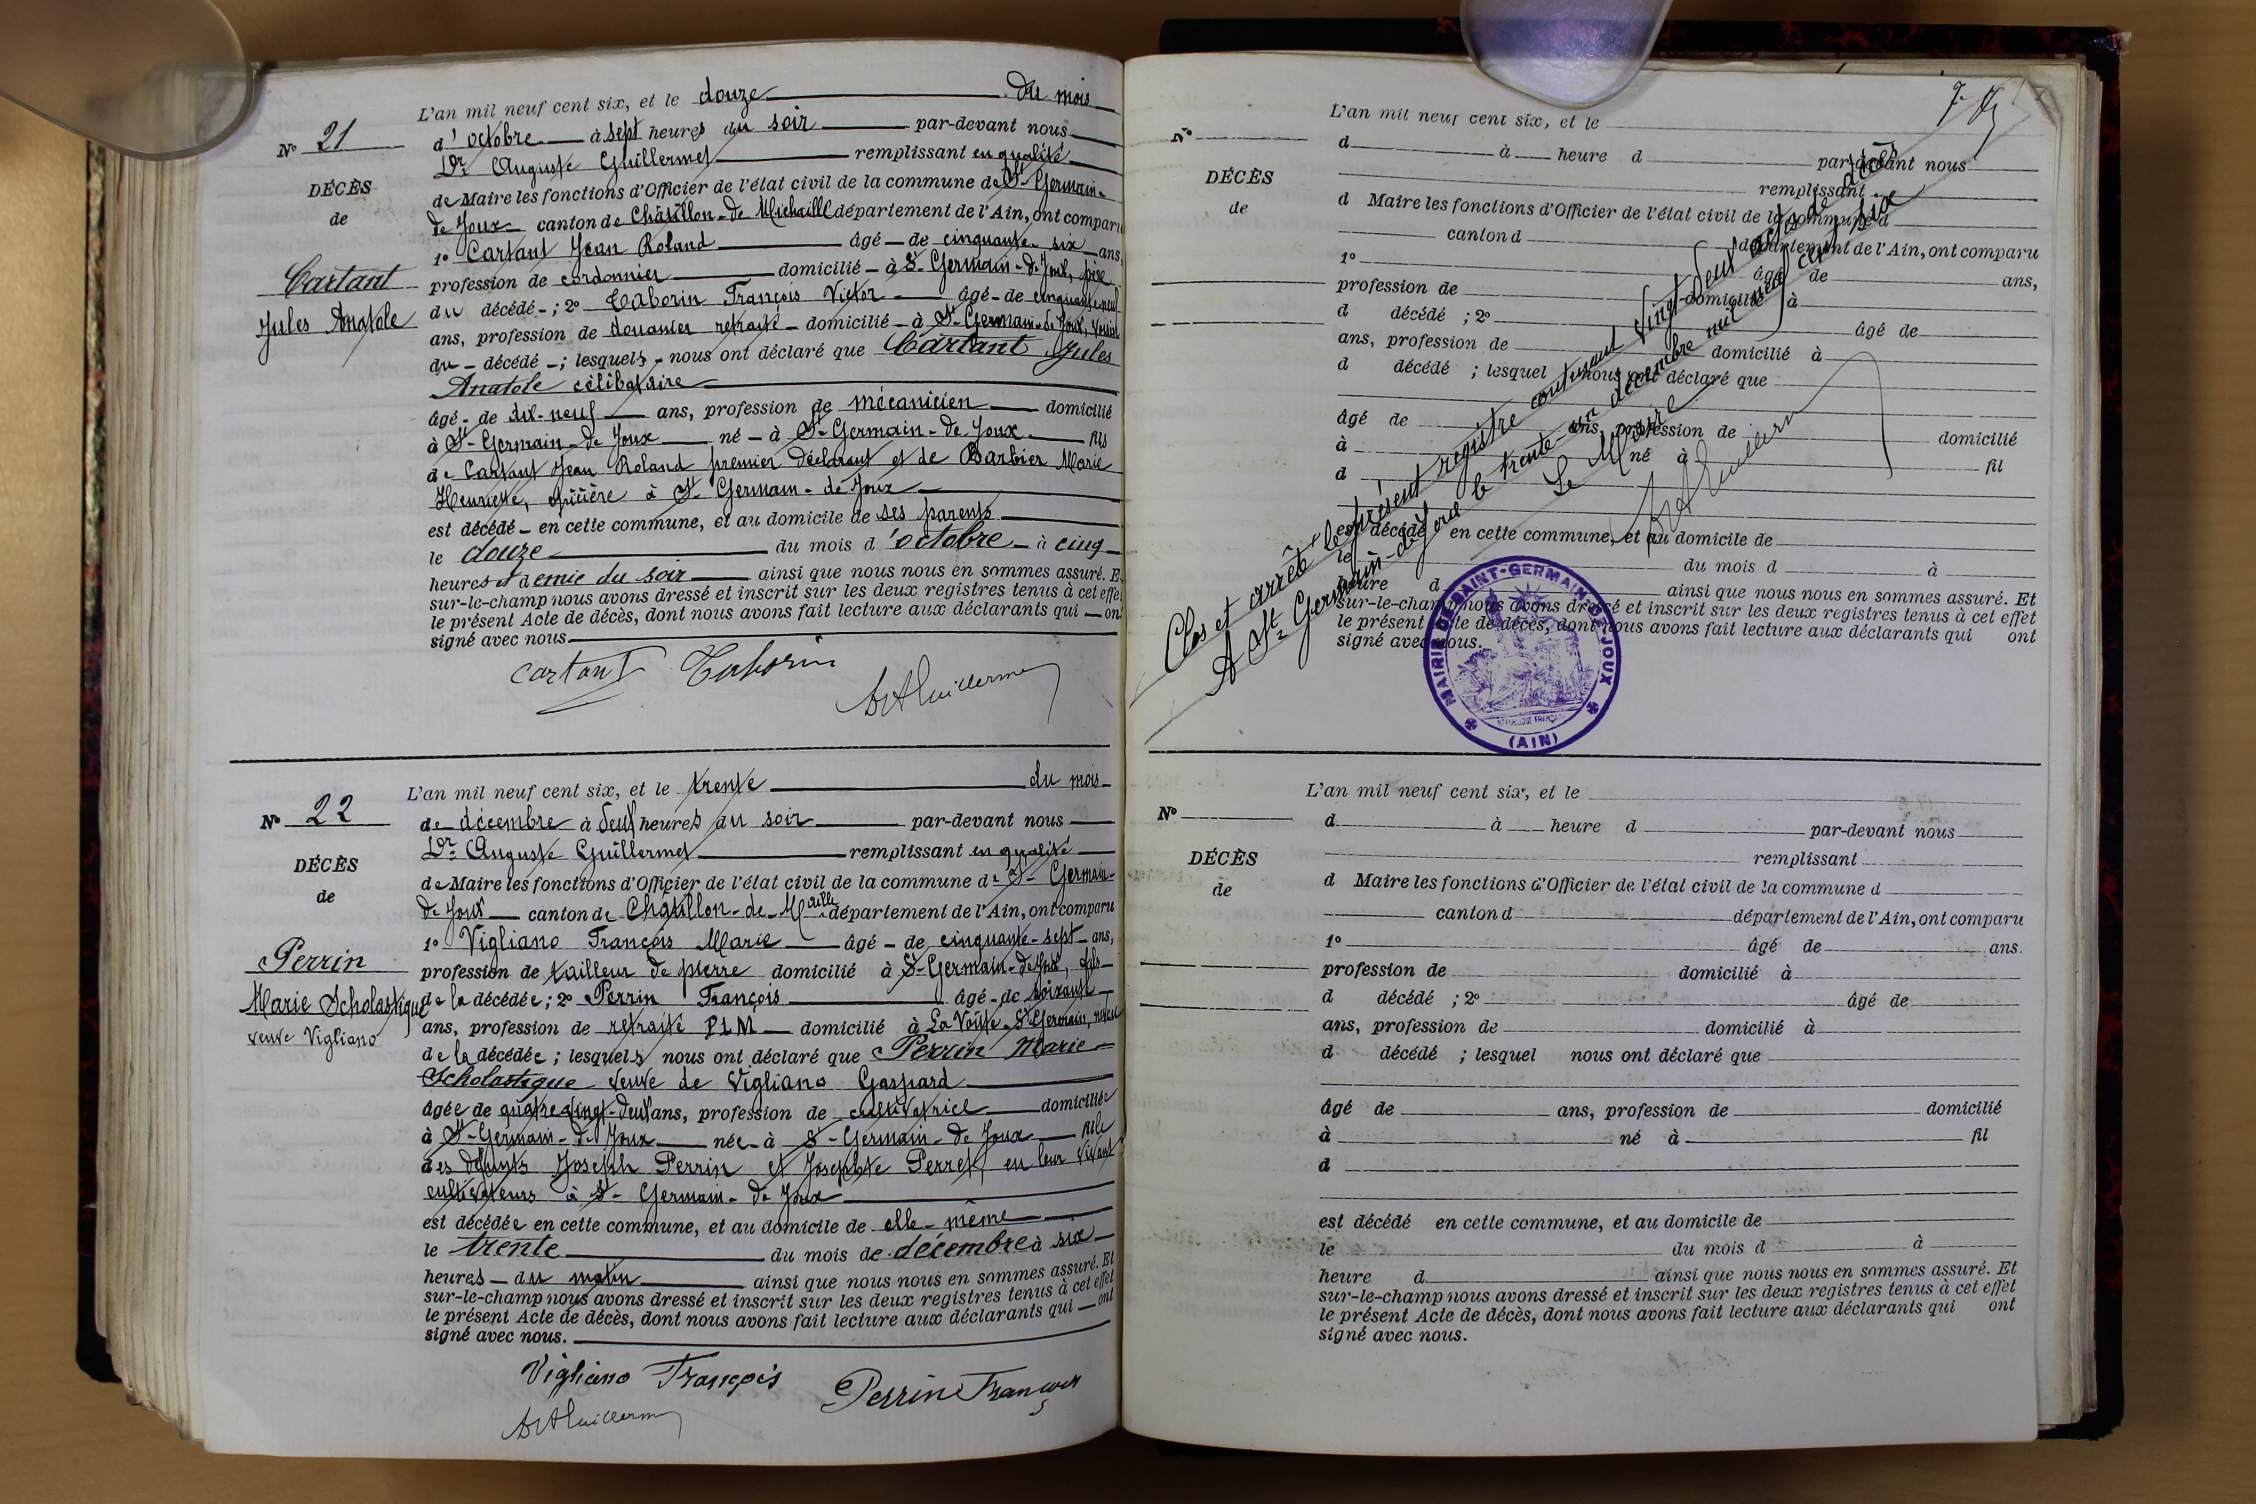 L'an mil neuf cent six, et le douze du mois
N° 21
d'octobre à sept heures du soir par-devant nous
Dr Auguste Guillermet remplissant en qualité
DÉCÈS
de Maire les fonctions d'Officier de l'état civil de la commune de St-Germain-
de
de Joux canton de Châtillon-de-Michaille département de l'Ain, ont comparu
1° Cartant Jean Roland âgé de cinquante-six ans,
Cartant
profession de cordonnier domicilié à St-Germain-de-Joux, père
Jules Anatole
du décédé ; 2° Taborin François Victor âgé de cinquante-neuf
ans, profession de douanier retraité domicilié à St-Germain-de-Joux, voisin
du décédé ; lesquels nous ont déclaré que Cartant Jules
Anatole célibataire
âgé de dix-neuf ans, profession de mécanicien domicilié
à St-Germain-de-Joux né à St-Germain-de-Joux fils
de Cartant Jean Roland premier déclarant et de Barbier Marie
Henriette, épicière à St-Germain-de-Joux
est décédé en cette commune, et au domicile de ses parents
le douze du mois d'octobre à cinq
heures et demie du soir ainsi que nous nous en sommes assuré. E
sur-le-champ nous avons dressé et inscrit sur les deux registres tenus à cet effe
le présent Acte de décès, dont nous avons fait lecture aux déclarants qui on
signé avec nous
Cartant Taborin
Dr A Guillermet
L'an mil neuf cent six, et le trente du mois
N° 22
de décembre à deux heures du soir par-devant nous
Dr Auguste Guillermet remplissant en qualité
DÉCÈS
de Maire les fonctions d'Officier de l'état civil de la commune de St-Germain-
de
de Joux canton de Châtillon-de-Maille département de l'Ain, ont comparu
1° Vigliano François Marie âgé de cinquante-sept ans,
Perrin
profession de tailleur de pierre domicilié à St-Germain-de-Joux, fils
Marie Scholastique
de la décédée ; 2° Perrin François âgé de soixante
veuve Vigliano
ans, profession de retraité PLM domicilié à La Voûte, St-Germain, neveu
de la décédée ; lesquels nous ont déclaré que Perrin Marie
Scholastique veuve de Vigliano Gaspard
âgée de quatre-vingt-deux ans, profession de cultivatrice domiciliée
à St-Germain-de-Joux née à St-Germain-de-Joux fille
des défunts Joseph Perrin et Josephte Perret, en leur vivant
cultivateurs à St-Germain-de-Joux
est décédée en cette commune, et au domicile de elle-même
le trente du mois de décembre à six
heures du matin ainsi que nous nous en sommes assuré. Et
sur-le-champ nous avons dressé et inscrit sur les deux registres tenus à cet effet
le présent Acte de décès, dont nous avons fait lecture aux déclarants qui ont
signé avec nous.
Vigliano François Perrin François
Dr A Guillermet
L'an mil neuf cent six, et le
N°
d à heure d par-devant nous
DÉCÈS
remplissant
de
d Maire les fonctions d'Officier de l'état civil de la commune d
canton d département de l'Ain, ont comparu
1° âgé de ans,
profession de domicilié à
d décédé ; 2° âgé de
ans, profession de domicilié à
d décédé ; lesquel nous ont déclaré que
âgé de ans, profession de domicilié
à né à fil
d
est décédé en cette commune, et au domicile de
le du mois d à
heure d ainsi que nous nous en sommes assuré. Et
sur-le-champ nous avons dressé et inscrit sur les deux registres tenus à cet effet
le présent Acte de décès, dont nous avons fait lecture aux déclarants qui ont
signé avec nous.
Clos et arrêté le présent registre contenant vingt-deux actes de décès
A St-Germain-de-Joux le trente-un décembre mil neuf cent six
Le Maire
Dr A Guillermet
MAIRIE DE SAINT-GERMAIN-DE-JOUX
RÉPUBLIQUE FRANÇAISE
(AIN)
L'an mil neuf cent six, et le
N°
d à heure d par-devant nous
DÉCÈS
remplissant
de
d Maire les fonctions d'Officier de l'état civil de la commune d
canton d département de l'Ain, ont comparu
1° âgé de ans.
profession de domicilié à
d décédé ; 2° âgé de
ans, profession de domicilié à
d décédé ; lesquel nous ont déclaré que
âgé de ans, profession de domicilié
à né à fil
d
est décédé en cette commune, et au domicile de
le du mois d à
heure d ainsi que nous nous en sommes assuré. Et
sur-le-champ nous avons dressé et inscrit sur les deux registres tenus à cet effet
le présent Acte de décès, dont nous avons fait lecture aux déclarants qui ont
signé avec nous.